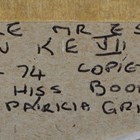 E MR ES
N KEVII
74 COPIE
HISS BOO
PATRICIA GR